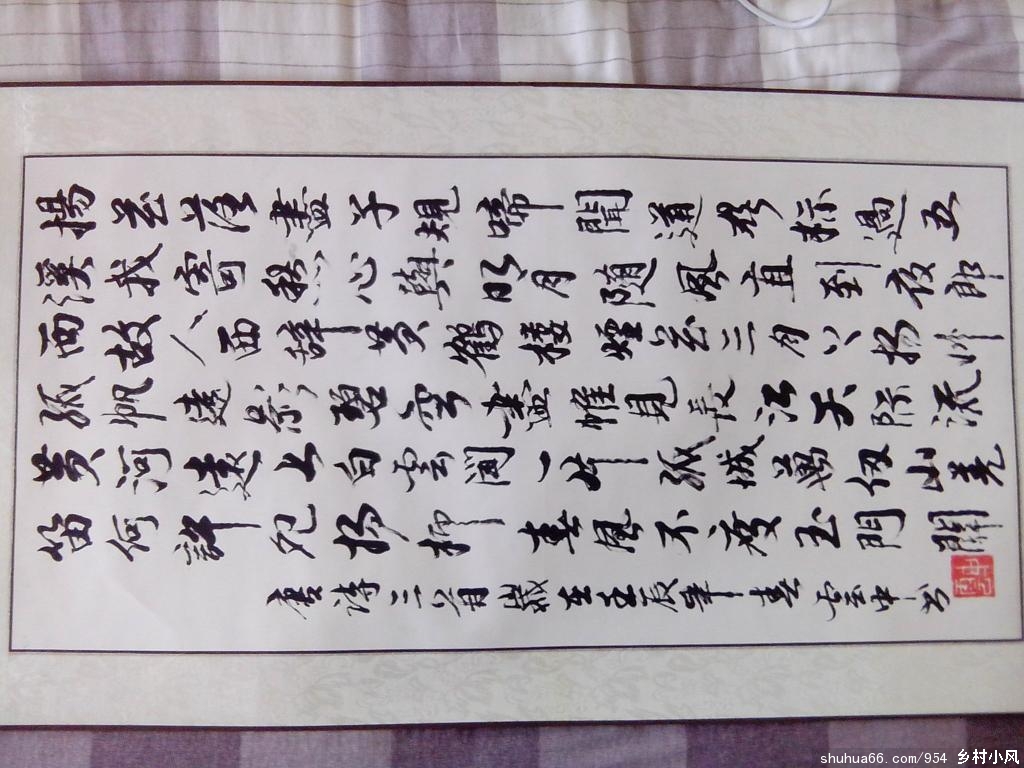 揚花落盡子規啼聞道龙標過五
溪我寄愁心與明月随風直到夜郎
西故人西辞黄鶴楼煙花三月下扬州
孤帆遠影碧空盡惟見長江天際流
黄河遠上白雲間一片孤城萬仞山羌
笛何許怨杨柳春風不度玉門關
唐詩三首歲在壬辰年春雲中书
shuhua66.com/954 乡村小风